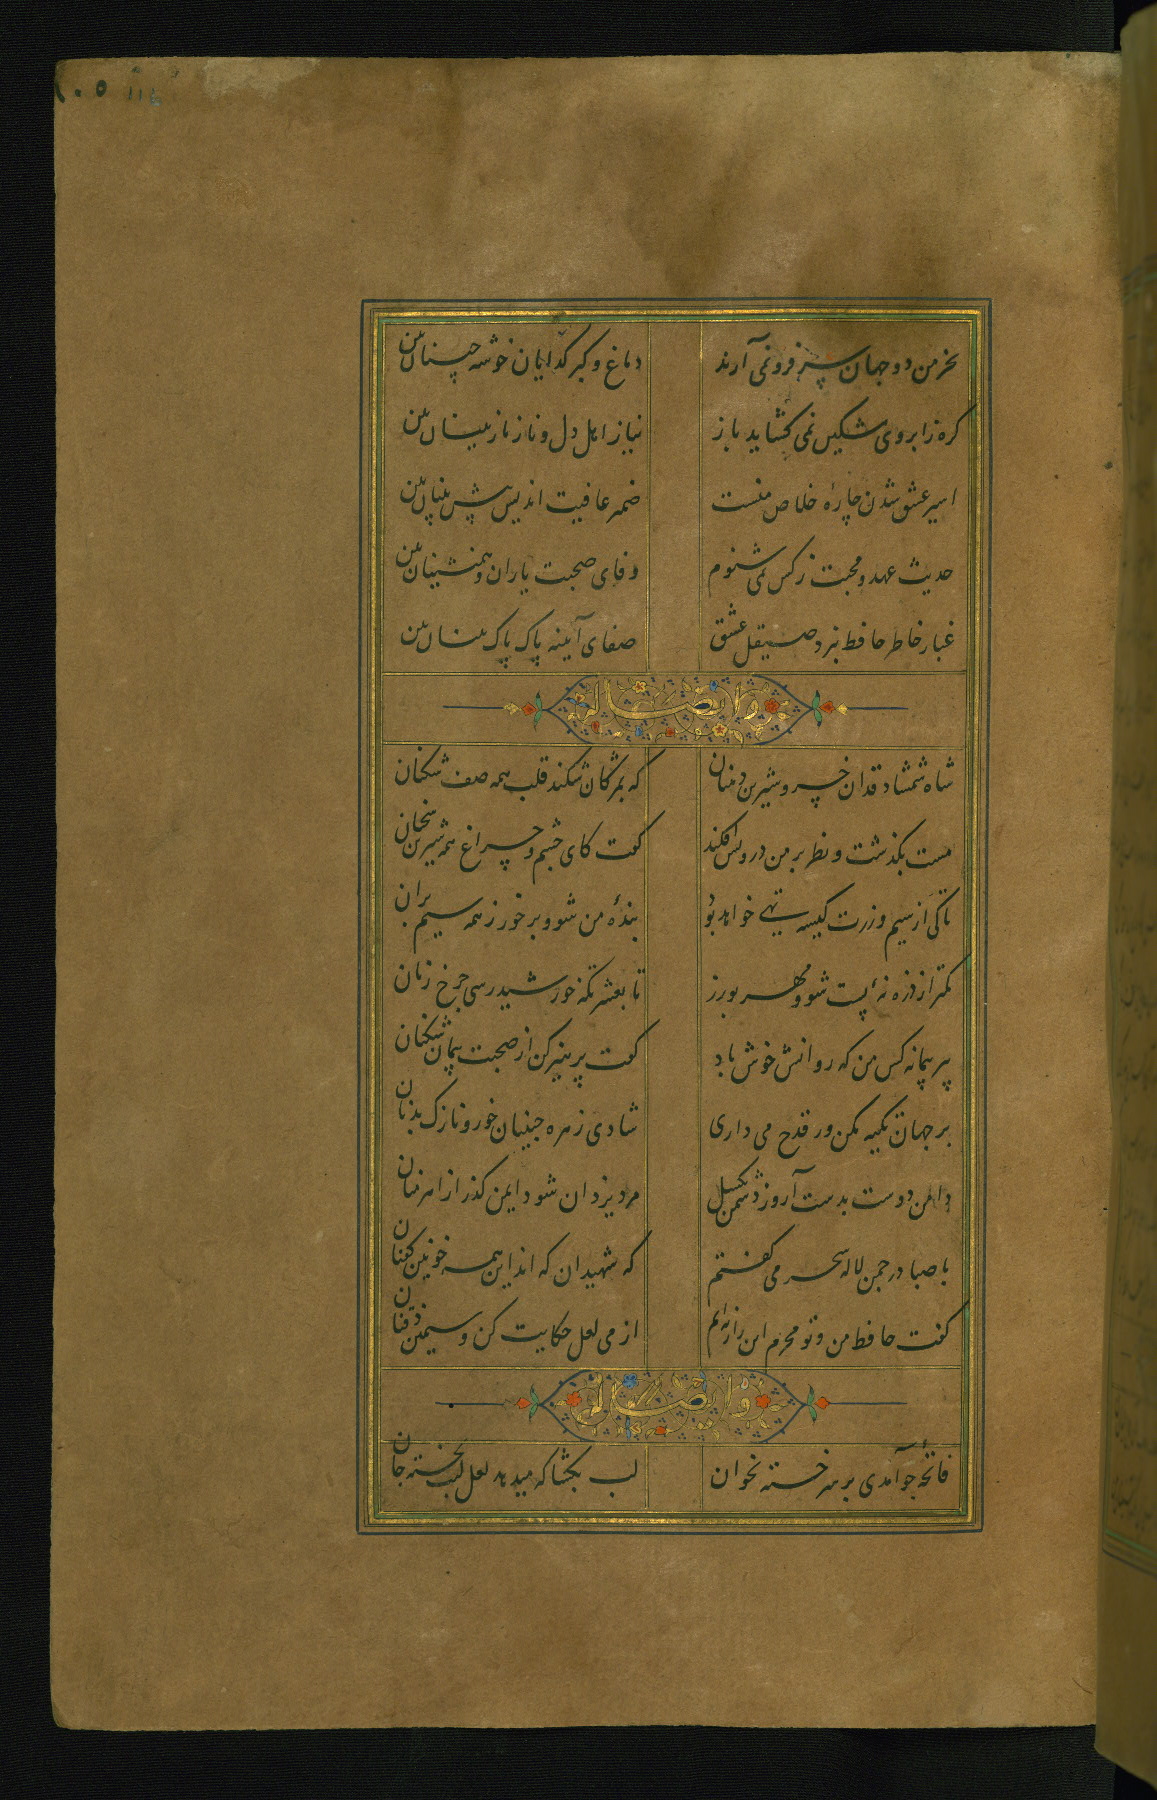 بخرمن دو جهان سر فرو نمی آرند دماغ و کبر کدایان خوشه چینان بین
کره ز ابروی مشکین نمی کشاید باز نیاز اهل دل و ناز نازنینان بین
اسیر عشق شدن چاره خلاص منست ضمیر عاقبت اندیش پیش بینان بین
حدیث عهد و محبت ز کس نمی شنوم وفای صحبت یاران و همنشینان بین
غبار خاطر حافظ ببرد صیقل عشق صفای آیینه پاک پاک بینان بین
و ایضا له
شاه شمشاد قدان خسرو شیرین دهنان که بمژکان شکند قلب همه صف شکنان
مست بکذشت و نظر بر من درویش افکند کفت کای چشم و چراغ همه شیرین سخنان
تا کی از سیم و زرت کیسه تهی خواهد بود بنده من شو و بر خور ز همه سیم بران
کمتر از ذره نه پست شو و مهر بورز تا بعشرتکه خورشید رسی چرخ زنان
پیر پیمانه کش من که روانش خوش باد کفت پرهیز کن از صحبت پیمان شکنان
بر جهان تکیه مکن ور قدح می داری شادی زهره جبینان خور و نازک بدنان
دامن دوست بدست آر و ز دشمن بکسل مرد یزدان شو و ایمن کذر از اهرمنان
با صبا در چمن لاله سحر می کفتم که شهیدان که اند این همه خونین کفنان
کفت حافظ من و تو محرم این راز نه ایم از می لعل حکایت کن و سیمین ذقنان
و ایضا له
فاتحه چو آمدی بر سر خسته بخوان لب بکشا که میدهد لعل لبت بخسته جان